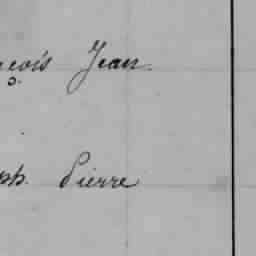 çois Jean.
ph. Pierre